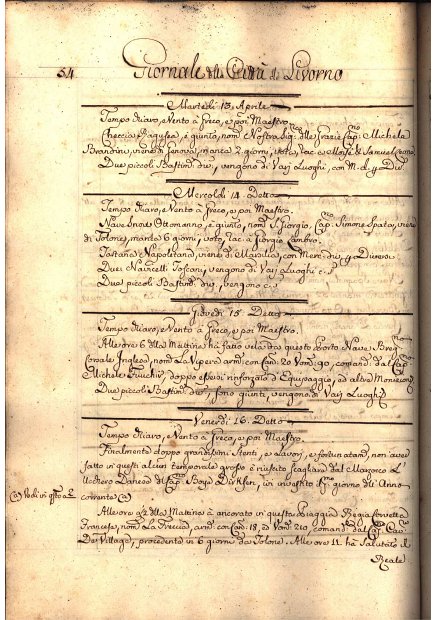 54 Giornale della Città di Livorno
Martedì 13 Aprile
Tempo chiaro, e Vento à Greco, e poi Maestro.
Checcia Ragusea, è giunto, nom.ta Nostra Sig.ra delle Grazie Cap.no Michele
viene di Genova, manca 2 giorni, voto, rac. a Moisè di Samuel
Due piccoli Bastim.ti div.si, vengono di Varj Luoghi, con M. d. g. Div.
Mercoldì 14 Detto
Tempo chiaro, e Vento à Greco, e poi Maestro.
Nave Ottomanno, è giunto, nom. S. Giorgio, Cap. Simone viene
di Tolone, manca 6 giorni, voto, rac. a Giorgio
Napolitana, viene di Marsilia, con Merc. div. g. Diversi
Due Navicelli Toscani, vengono di Varj Luoghi c. s.
Due piccoli Bastim.ti div.si, vengono c. s.
Giovedì 15 Detto
Tempo chiaro, e Vento à Greco, e poi Maestro.
Alle ore 6 della Mattina hà fatto vela da questo Porto Nave
Corsale Inglese, nom.ta La Vipera arm. con Can. 20 Vom. 90, comand. dal Cap.
Michele doppo essersi rinforzato d'Equipaggio, ed altre
Due piccoli Bastim.ti div.si, sono giunti, vengono di Varj Luoghi
Venerdì 16. Detto
Tempo chiaro, e Vento à Greco, e poi Maestro.
Finalmente doppo grandissimi Stenti, e Lavori, e fortunatam.te non aver
fatto in questi alcun temporale grosso è riuscito scagliare dal Marzocco l'
Danese del Cap. Boye Dirksen, ivi investito giorno dell' Anno
(a) Vedi in qsto a c.
corrente (a)
Alle ore 9/2 della Mattina è ancorato in questa Spiaggia Regia Corvetta
Francese, nom.ta La Freccia, arm. con Can. 18, ed Vom. 210, comand. dal Cap.
De Village, procedente in 6 giorni da Tolone. Alle ore 11 hà Salutato il
Reale